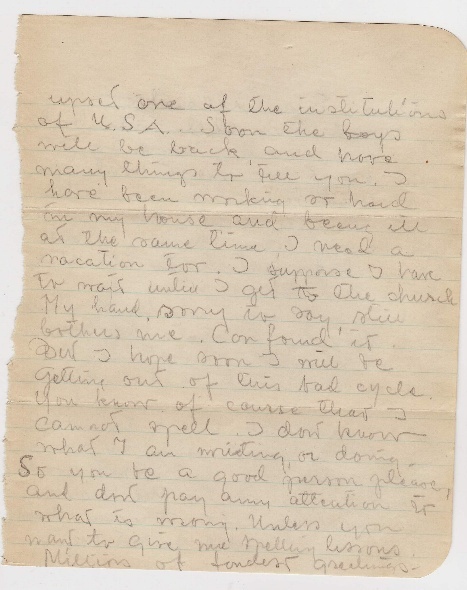 upset one of the institutions
of U.S.A. Soon the boys
will be back, and have
many things to tell you. I
have been working so hard
in my house and being ill
at the same time, I need a
vacation too. I suppose I have
to wait until I get to the church
My hand, sorry to say still
bothers me. Confound it.
But I hope soon I will be
getting out of this bad cycle.
You know of course that I
cannot spell I dont know
what I am writing, or doing.
So you be a good person please,
and dont pay any attention to
what is wrong. Unless you
want to give me spelling lessons.
Millions of fondest greetings-